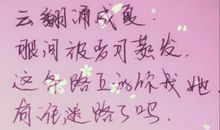 云翻涌成夏.
眼泪被岁月蒸发.
这条路上的你我她
有谁迷路了吗.